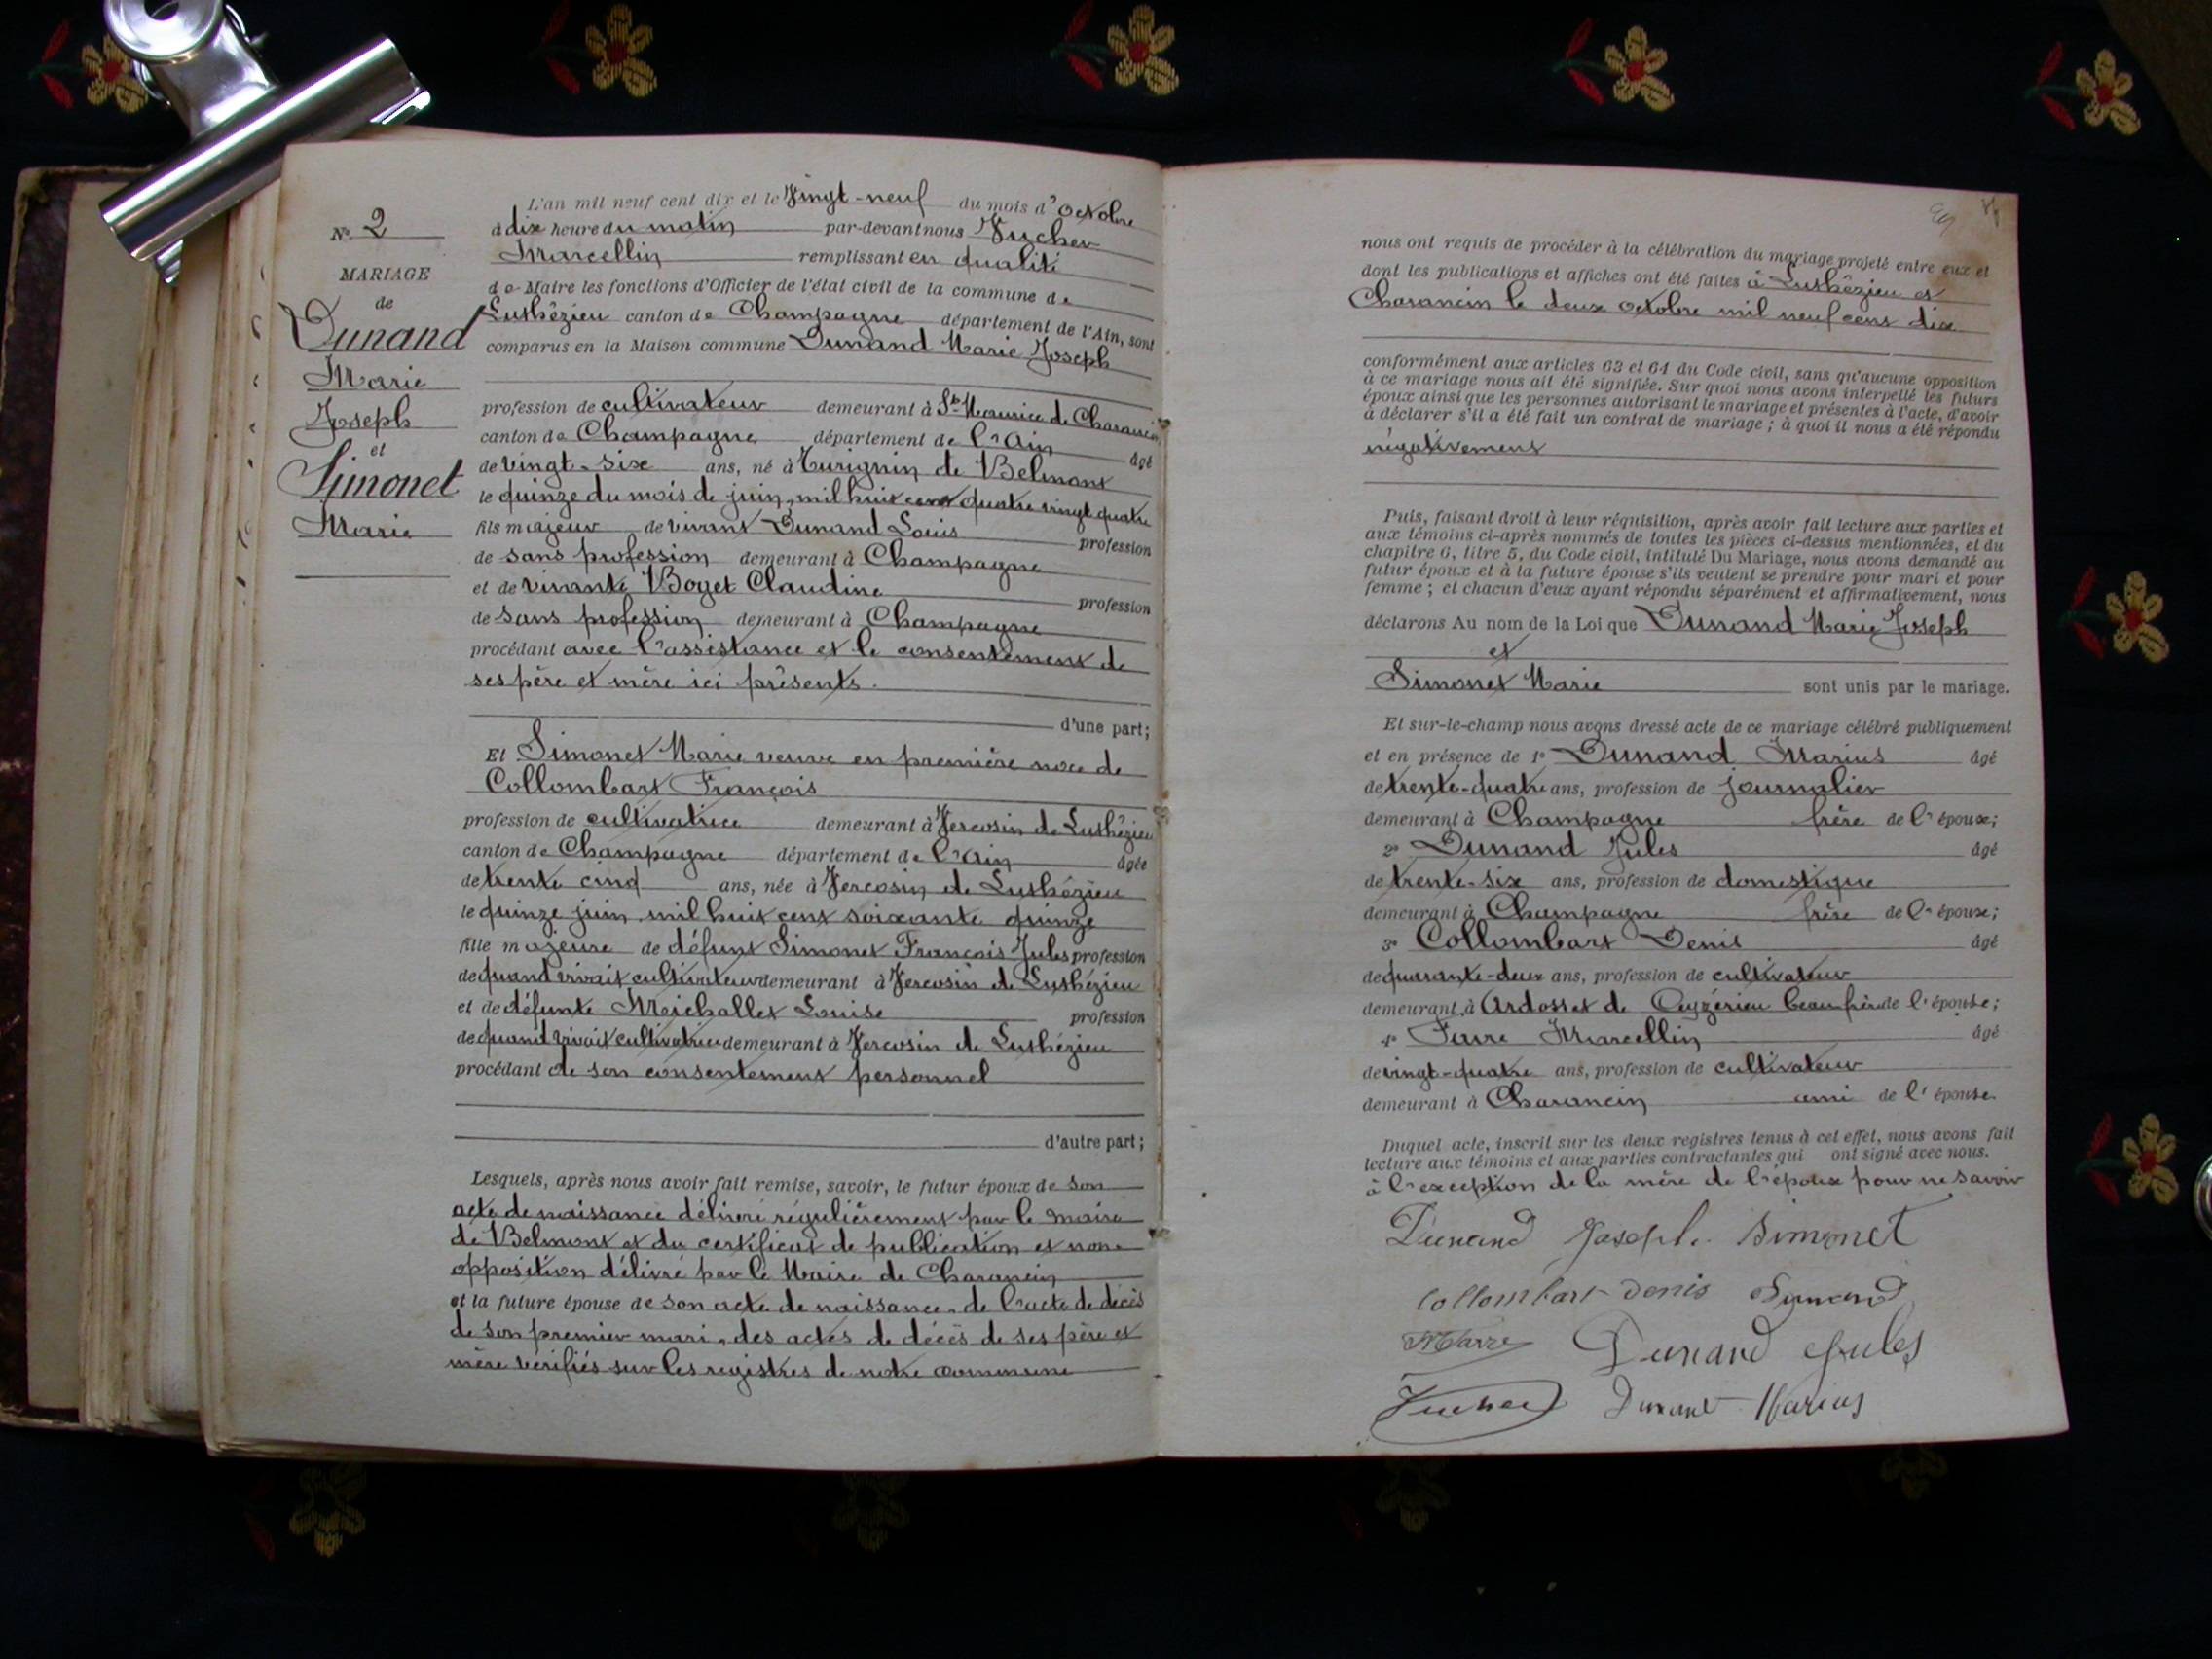 N° 2
MARIAGE
de
Dunand
Marie
Joseph
et
Simonet
Marie
L'an mil neuf cent dix et le Vingt-neuf du mois d'octobre
à dix heure du matin par-devant nous Jucher
Marcellin remplissant en qualité
de Maire les fonctions d'Officier de l'état civil de la commune de
Luthézieu canton de Champagne département de l'Ain, sont
comparus en la Maison commune Dunand Marie Joseph
profession de cultivateur demeurant à St Maurice de Charancin
canton de Champagne département de l'Ain âgé
de vingt-six ans, né à Turignin de Belmont
le quinze du mois de juin, mil huit cent quatre vingt quatre
fils majeur de vivant Dunand Louis profession
de sans profession demeurant à Champagne
et de vivante Boget Claudine profession
de sans profession demeurant à Champagne
procédant avec l'assistance et le consentement de
ses père et mère ici présents.
d'une part;
Et Simonet Marie veuve en première noce de
Collombart François
profession de cultivatrice demeurant à Vercosin de Luthézieu
canton de Champagne département de l'Ain âgée
de trente cinq ans, née à Vercosin de Luthézieu
le quinze juin mil huit cent soixante quinze
fille majeure de défunt Simonet François Jules profession
de quand vivait cultivateur demeurant à Vercosin de Luthézieu
et de défunte Michallet Louise profession
de quand vivait cultivatrice demeurant à Vercosin de Luthézieu
procédant de son consentement personnel
d'autre part;
Lesquels, après nous avoir fait remise, savoir, le futur époux de son
acte de naissance délivré régulièrement par le maire
de Belmont et du certificat de publication et non
opposition délivré par le Maire de Charancin
et la future épouse de son acte de naissance, de l'acte de décès
de son premier mari, des actes de décès de ses père et
mère vérifiés sur les registres de notre commune
nous ont requis de procéder à la célébration du mariage projeté entre eux et
dont les publications et affiches ont été faites à Luthézieu et
Charancin le deux octobre mil neuf cent dix
conformément aux articles 63 et 64 du Code civil, sans qu'aucune opposition
à ce mariage nous ait été signifiée. Sur quoi nous avons interpellé les futurs
époux ainsi que les personnes autorisant le mariage et présentes à l'acte, d'avoir
à déclarer s'il a été fait un contrat de mariage; à quoi il nous a été répondu
négativement
Puis, faisant droit à leur réquisition, après avoir fait lecture aux parties et
aux témoins ci-après nommés de toutes les pièces ci-dessus mentionnées, et du
chapitre 6, titre 5, du Code civil, intitulé Du Mariage, nous avons demandé au
futur époux et à la future épouse s'ils veulent se prendre pour mari et pour
femme; et chacun d'eux ayant répondu séparément et affirmativement, nous
déclarons Au nom de la Loi que Dunand Marie Joseph
et
Simonet Marie sont unis par le mariage.
Et sur-le-champ nous avons dressé acte de ce mariage célébré publiquement
et en présence de 1° Dunand Marius âgé
de trente-quatre ans, profession de journalier
demeurant à Champagne frère de l'époux;
2° Dunand Jules âgé
de trente-six ans, profession de domestique
demeurant à Champagne frère de l'époux;
3° Collombart Denis âgé
de quarante-deux ans, profession de cultivateur
demeurant à Ardosset de Ceyzérieu beaufrère de l'épouse;
4° Favre Marcellin âgé
de vingt-quatre ans, profession de cultivateur
demeurant à Charancin ami de l'épouse.
Duquel acte, inscrit sur les deux registres tenus à cet effet, nous avons fait
lecture aux témoins et aux parties contractantes qui ont signé avec nous.
à l'exception de la mère de l'époux pour ne savoir
Dunand Joseph Simonet
Collombart Denis Dunand
Dunand Jules
Jucher Dunand Marius